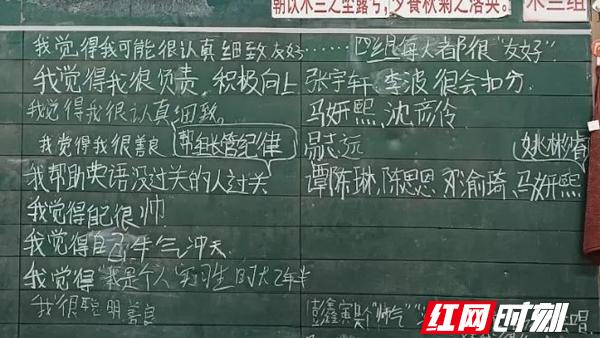 朝饮木兰之坠露兮，夕餐秋菊之落英。
我觉得我可能很认真细致友好……
四组每人都很"友好"
我觉得我很负责，积极向上
张宇轩、李波很会扣分
我觉得我很认真细致。
马妍熙，沈彦伶
我觉得我很善良
帮组长管纪律
易志远
姚彬睿
我帮助英语没过关的人过关
谭陈琳，陈思恩，邓渝琦，马妍熙
我觉得自己很帅
我觉得自己牛气冲天
我觉得"我是个人"
我很聪明善良
彭鑫寅是个"帅气"
红网时刻